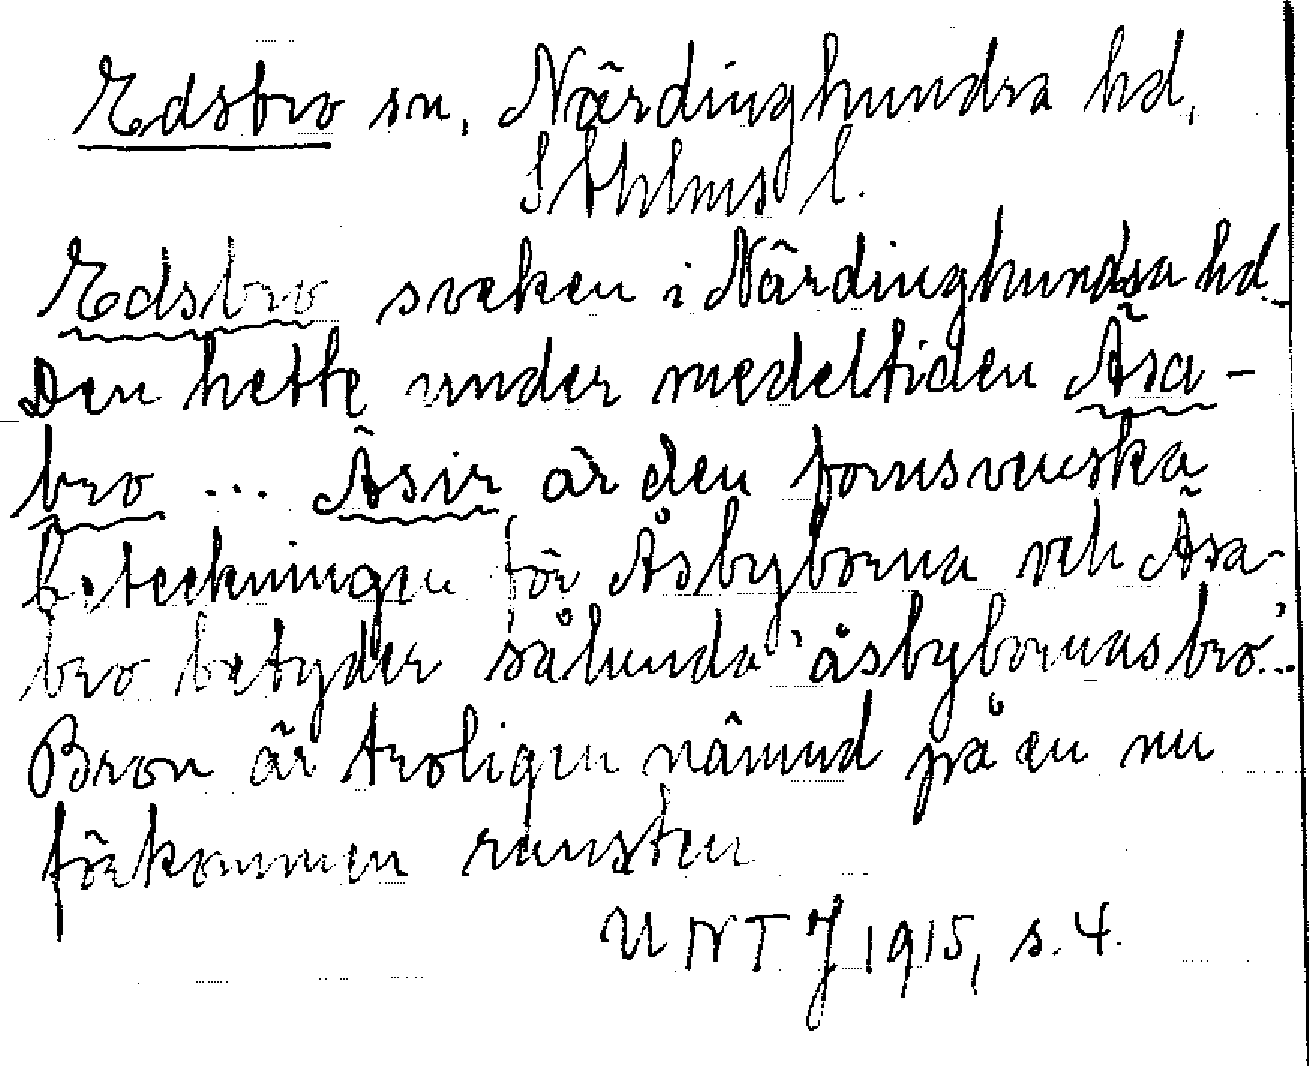 Edsbro sn, Närdinghundra hd,
Sthlms l.
Edsbro socken i Närdinghundra hd.
Den hette under medeltiden Äsa-
bro ... Äsir är den fornsvenska
beteckningen för Åsbyborna och Äsa-
bro betyder sålunda 'åsbybornas bro'...
Bron är troligen nämnd på en nu
förkommen runsten
UNT J 1915, s. 4.